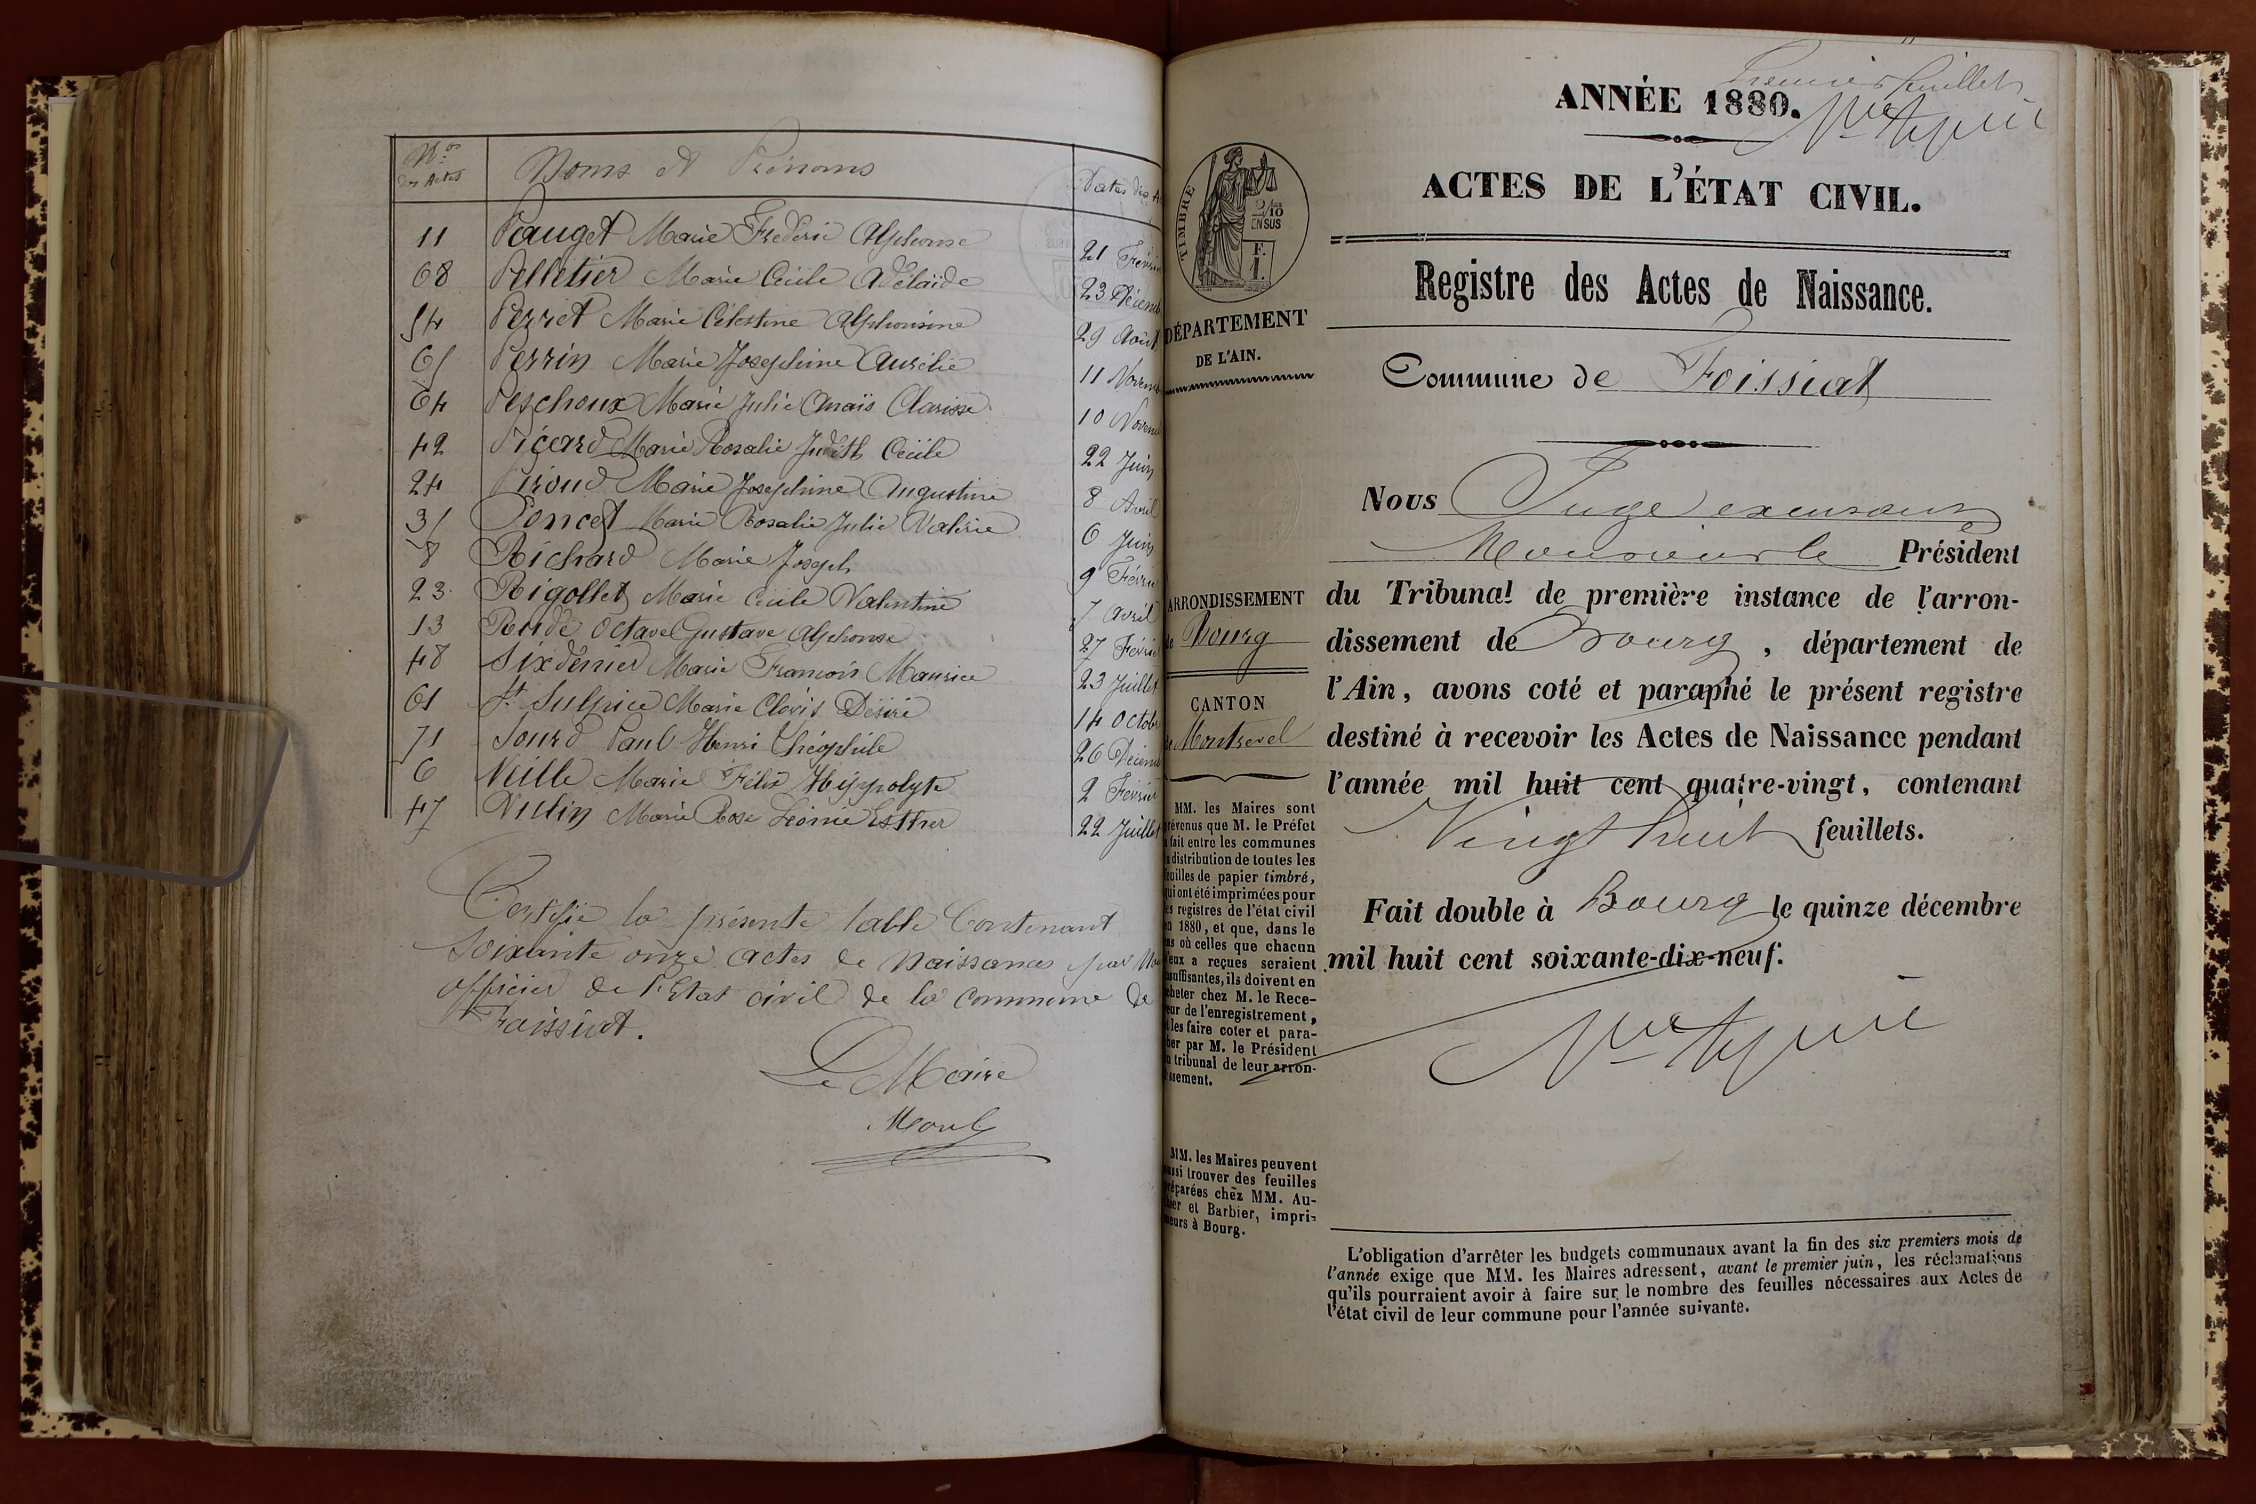 Nos des Actes Noms et Prénoms Dates des A
11 Pauget Marie Frédéric Alphonse 21 Févrie
68 Pelletier Marie Cécile Adélaïde 23 Décemb
54 Perret Marie Célestine Alphonsine 29 Août
65 Perrin Marie Joséphine Aurélie 11 Novemb
64 Peschoux Marie Julie Anaïs Clarisse 10 Novem
42 Picard Marie Rosalie Judith Cécile 22 Juin
24 Piroud Marie Joséphine Augustine 8 Avril
35 Poncet Marie Rosalie Julie Valérie 6 Juin
8 Richard Marie Joseph 9 Févrie
23 Rigollet Marie Cécile Valentine 7 Avril
13 Rude Octave Gustave Alphonse 27 Févri
48 Sixdenier Marie François Maurice 23 Juillet
61 St Sulpice Marie Clovis Désiré 14 Octob
71 Sourd Paul Henri Théophile 26 Décemb
6 Veille Marie Félix Hyppolyte 2 Février
47 Vulin Marie Rose Léonie Esther 22 Juillet
Certifié la présente table Contenant
soixante onze actes de Naissances par Nou
officier de l'Etat civil de la commune de
Foissiat.
Le Maire
Premier feuillet
ANNÉE 1880.
ACTES DE L'ÉTAT CIVIL.
TIMBRE
2/10
EN SUS
F.
1.
Registre des Actes de Naissance.
DÉPARTEMENT
DE L'AIN.
Commune de Foissiat
Nous Juge exerçant
Monsieur le Président
ARRONDISSEMENT
de Bourg
CANTON
de Montrevel
du Tribunal de première instance de l'arron-
dissement de Bourg, département de
l'Ain, avons coté et paraphé le présent registre
destiné à recevoir les Actes de Naissance pendant
l'année mil huit cent quatre-vingt, contenant
Vingt huit feuillets.
Fait double à Bourg le quinze décembre
mil huit cent soixante-dix-neuf.
MM. les Maires sont
révenus que M. le Préfet
a fait entre les communes
a distribution de toutes les
euilles de papier timbré,
qui ont été imprimées pour
es registres de l'état civil
en 1880, et que, dans le
as où celles que chacun
'eux a reçues seraient
suffisantes, ils doivent en
cheter chez M. le Rece-
eur de l'enregistrement,
t les faire coter et para-
her par M. le Président
u tribunal de leur arron-
issement.
MM. les Maires peuvent
ussi trouver des feuilles
réparées chez MM. Au-
hier et Barbier, impri-
meurs à Bourg.
L'obligation d'arrêter les budgets communaux avant la fin des six premiers mois de
l'année exige que MM. les Maires adressent, avant le premier juin, les réclamations
qu'ils pourraient avoir à faire sur le nombre des feuilles nécessaires aux Actes de
l'état civil de leur commune pour l'année suivante.